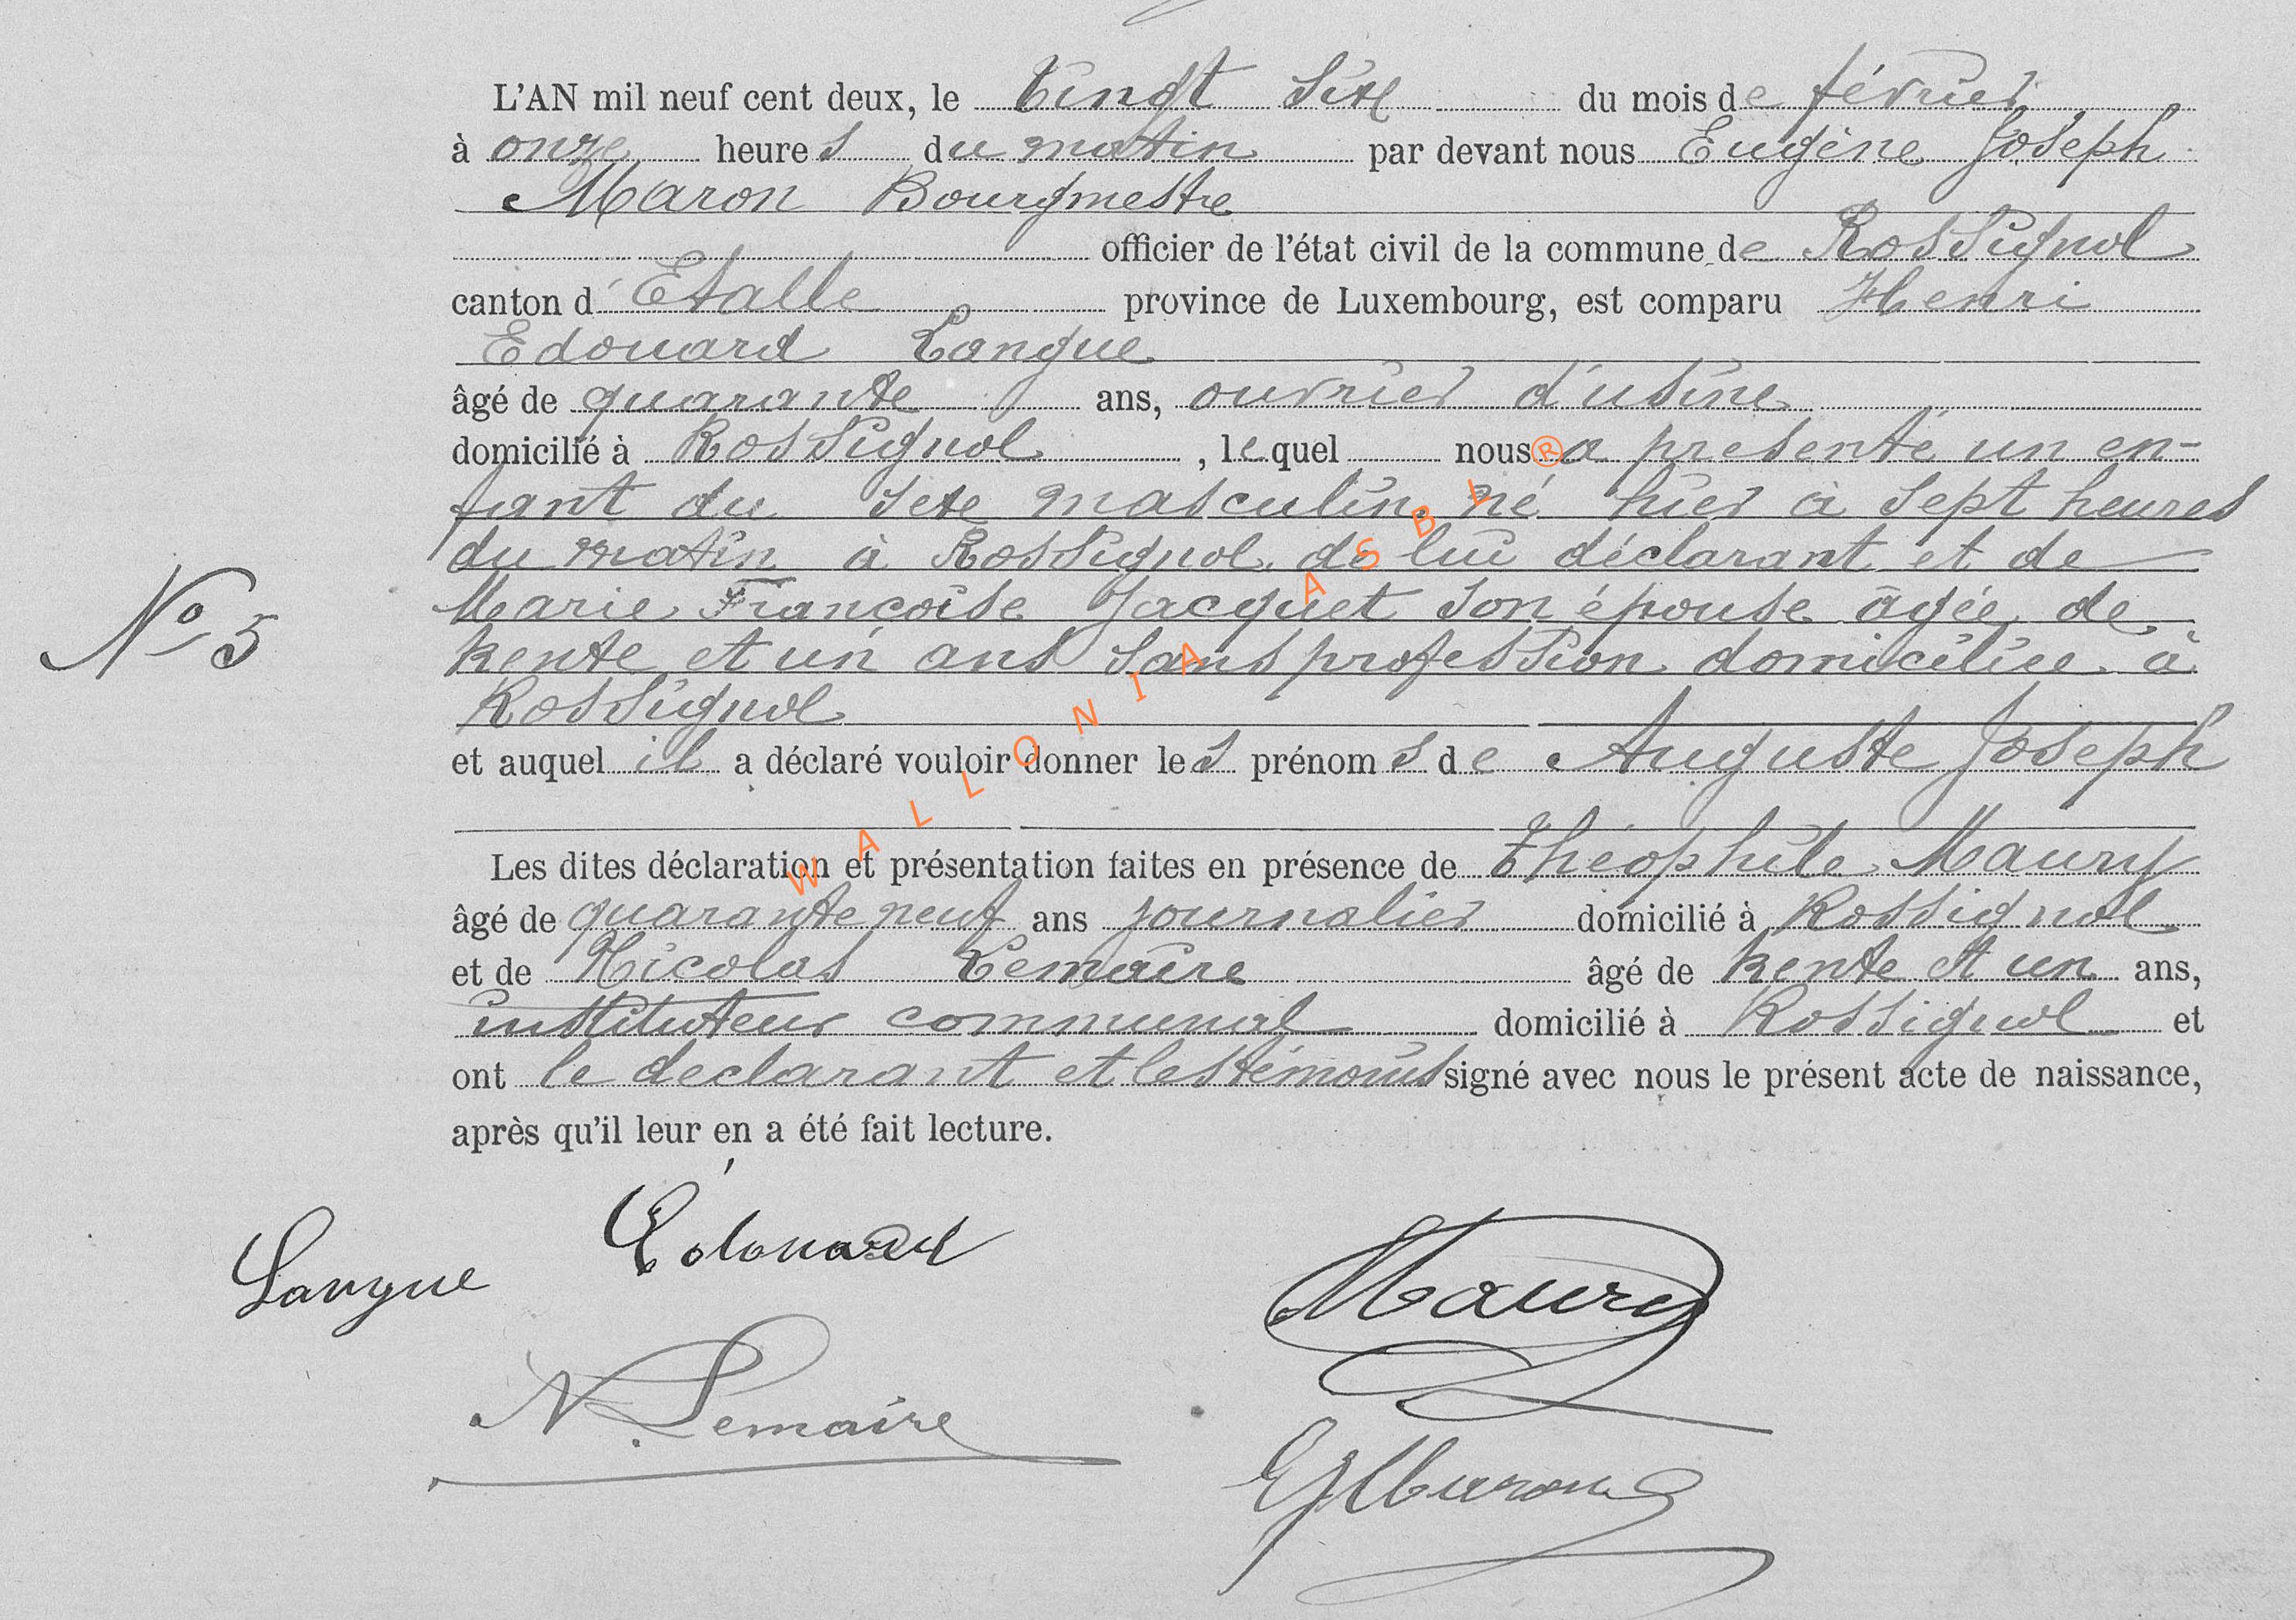 L'AN mil neuf cent deux, le Vingt Six du mois de février
à onze heures du matin par devant nous Eugène Joseph
Maron Bourgmestre
officier de l'état civil de la commune de Rossignol
canton d'Etalle province de Luxembourg, est comparu Henri
Edouard Langue
âgé de quarante ans, ouvrier d'usine
domicilié à Rossignol, lequel nous a presenté un en-
fant du sexe masculin né hier à sept heures
du matin à Rossignol de lui déclarant et de
Marie Françoise Jacquet son épouse âgée de
N° 5
trente et un ans sans profession domiciliée à
Rossignol
et auquel il a déclaré vouloir donner les prénoms de Auguste Joseph
Les dites déclaration et présentation faites en présence de Théophile Maury
âgé de quarante neuf ans journalier domicilié à Rossignol
et de Nicolas Lemaire âgé de trente et un ans,
instituteur communal domicilié à Rossignol et
ont le declarant et les témoins signé avec nous le présent acte de naissance,
après qu'il leur en a été fait lecture.
Langue Edouard
Maury
N Lemaire
EJMaron
WALLONIA ASBL ®